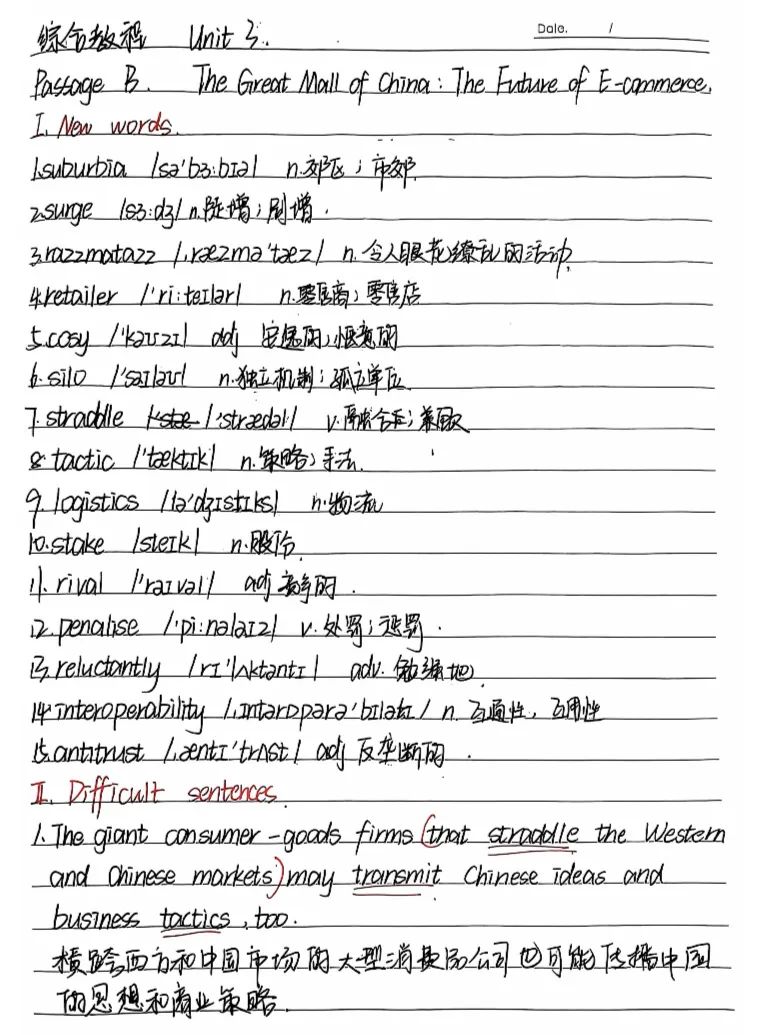 综合教程 Unit 3.
Date. /
Passage B. The Great Mall of China: The Future of E-commerce.
I. New words.
1.suburbia /sə'bɜ:bɪə/ n.郊区;市郊.
2.surge /sɜ:dʒ/ n.陡增;剧增.
3.razzmatazz /ˌræzmə'tæz/ n.令人眼花缭乱的活动.
4.retailer /'ri:teɪlər/ n.零售商;零售店
5.cosy /'kəʊzɪ/ adj 安逸的;惬意的
6.silo /'saɪləʊ/ n.独立机制;孤立单位.
7.straddle /'stæ /'strædəl/ v.融合于;兼取
8.tactic /'tæktɪk/ n.策略;手法.
9.logistics /lə'dʒɪstɪks/ n.物流
10.stake /steɪk/ n.股份.
11.rival /'raɪvəl/ adj 竞争的.
12.penalise /'pi:nəlaɪz/ v.处罚;惩罚.
13.reluctantly /rɪ'lʌktəntɪ/ adv.勉强地.
14.interoperability /ˌɪntərɒpərə'bɪlətɪ/ n.互通性,互用性
15.antitrust /ˌæntɪ'trʌst/ adj 反垄断的.
II. Difficult sentences.
1.The giant consumer-goods firms (that straddle the Western
and Chinese markets) may transmit Chinese ideas and
business tactics, too.
横跨西方和中国市场的大型消费品公司也可能传播中国
的思想和商业策略.